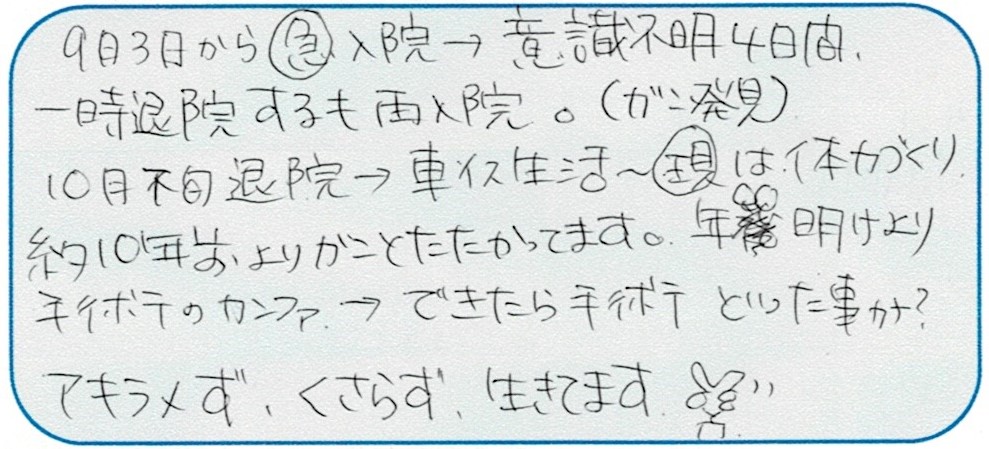 9月3日から㊝急入院→意識不明4日間、
一時退院するも再入院。(ガン発見)
10月下旬退院→車イス生活～現は体力づくり、
約10年前よりガンとたたかってます。年明けより
手術のカンファ→できたら手術 といった事かナ?
アキラメず、くさらず、生きてます